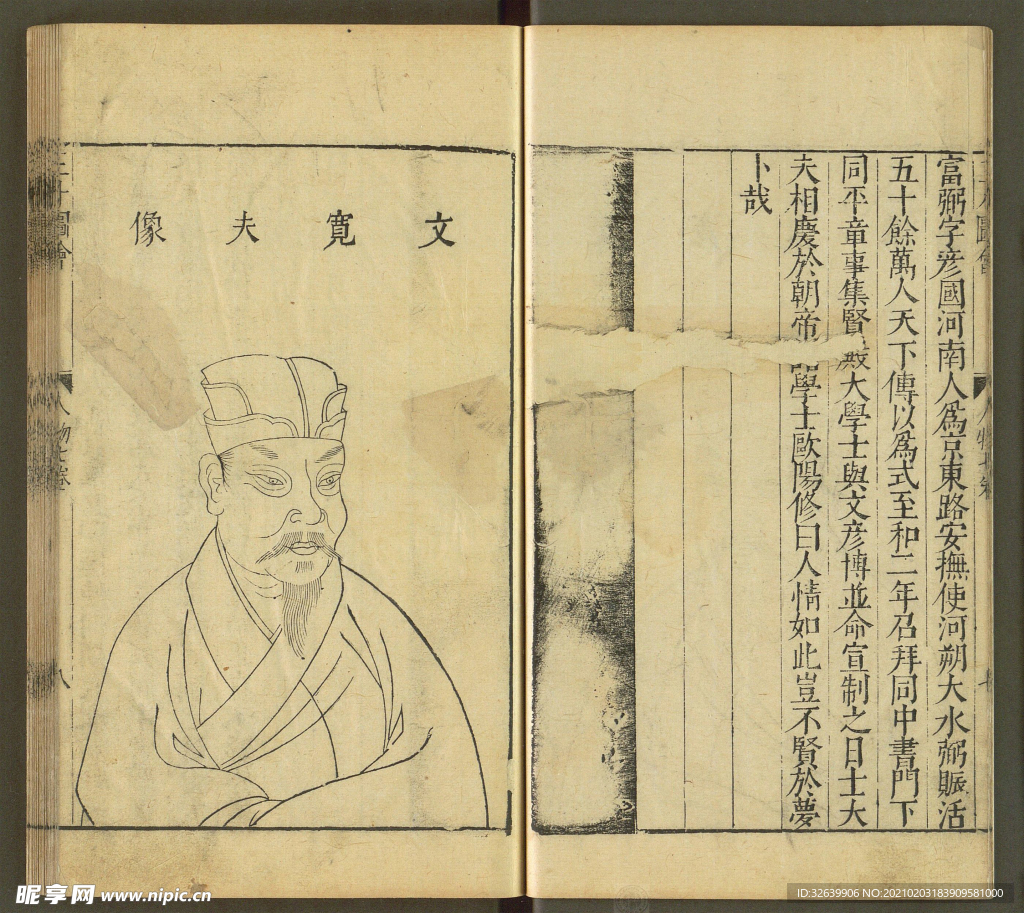 富弼字彦國河南人為京東路安撫使河朔大水弼賑活
五十餘萬人天下傳以為式至和二年召拜同中書門下
同平章事集賢殿大學士與文彦博並命宣制之日士大
夫相慶於朝帝 學士歐陽修曰人情如此豈不賢於夢
卜哉
文寬夫像
圖會
人物七卷
八
昵享网 www.nipic.cn
ID:32639906 NO:20210203183909581000